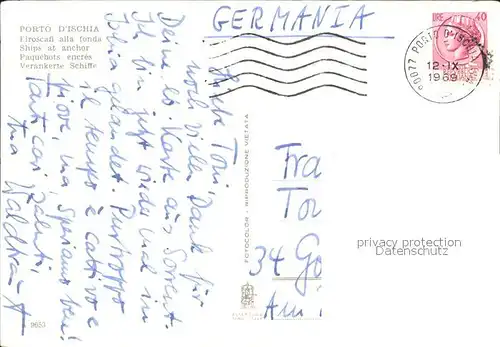 PORTO D'ISCHIA
Piroscafi alla fonda
Ships at anchor
Paquebots encrés
Verankerte Schiffe
GERMANIA
LIRE 40
80077 PORTO D'ISCHIA
12-IX
1969
Liebe Toni,
noch vielen Dank für
Deine lb Karte aus Sorrent.
Ich bin jetzt wieder mal in
Ischia gelandet. Purtroppo
il tempo è cattivo e
piove, ma speriamo ben!
Tanti cari saluti,
tua Waldtraut
FOTOCOLOR - RIPRODUZIONE VIETATA
Fra
Tor
34 Go
Am
privacy protection
Datenschutz
9653